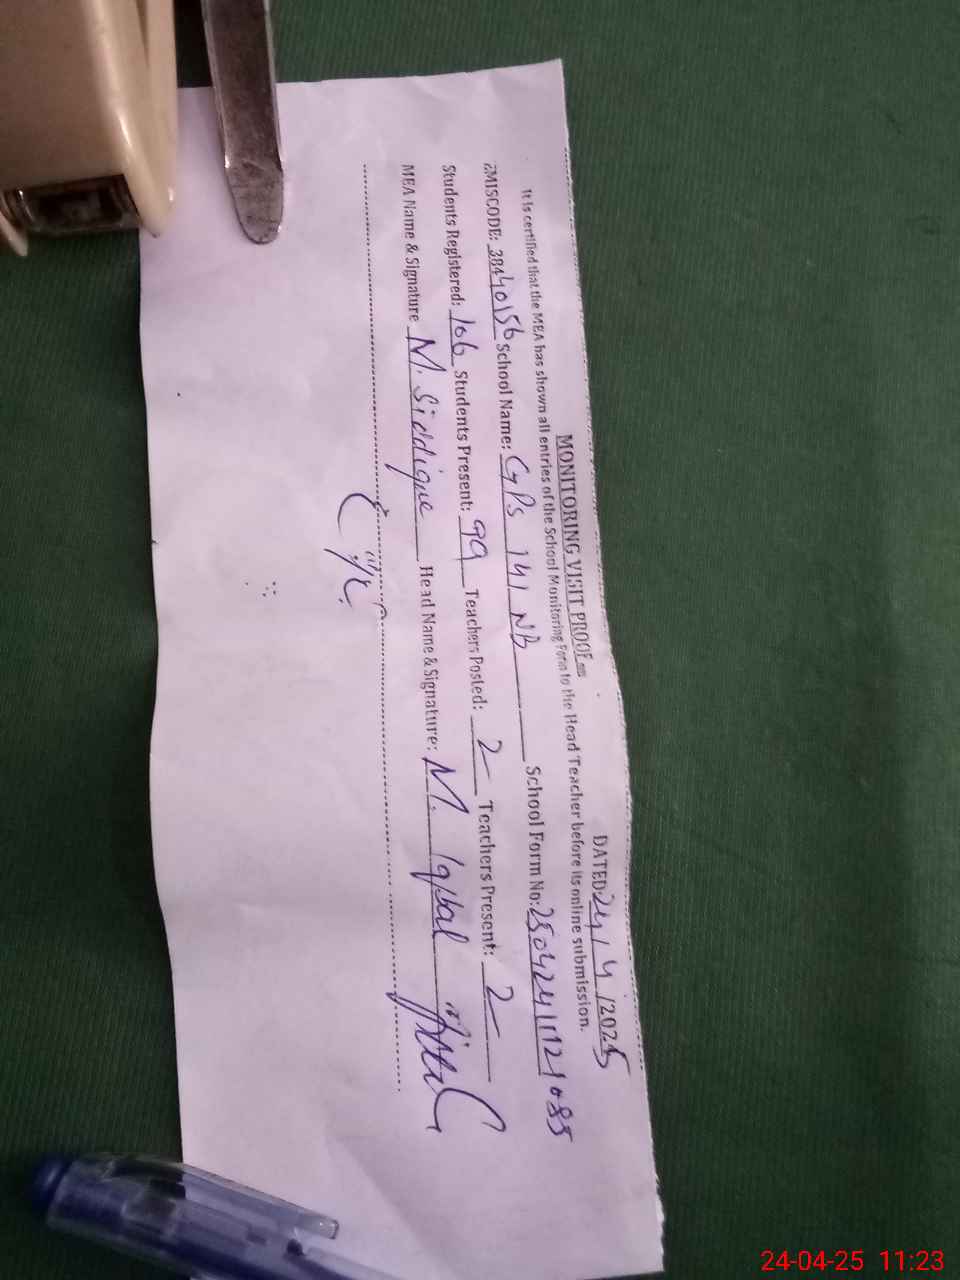 MONITORING VISIT PROOF
DATED: 24/4/2025
It is certified that the MEA has shown all entries of the School Monitoring Form to the Head Teacher before its online submission.
EMISCODE: 38440156 School Name: GPS 141 NB School Form No: 25042411121085
Students Registered: 106 Students Present: 99 Teachers Posted: 2 Teachers Present: 2
MEA Name & Signature M. Siddique Head Name & Signature: M. Iqbal
24-04-25 11:23